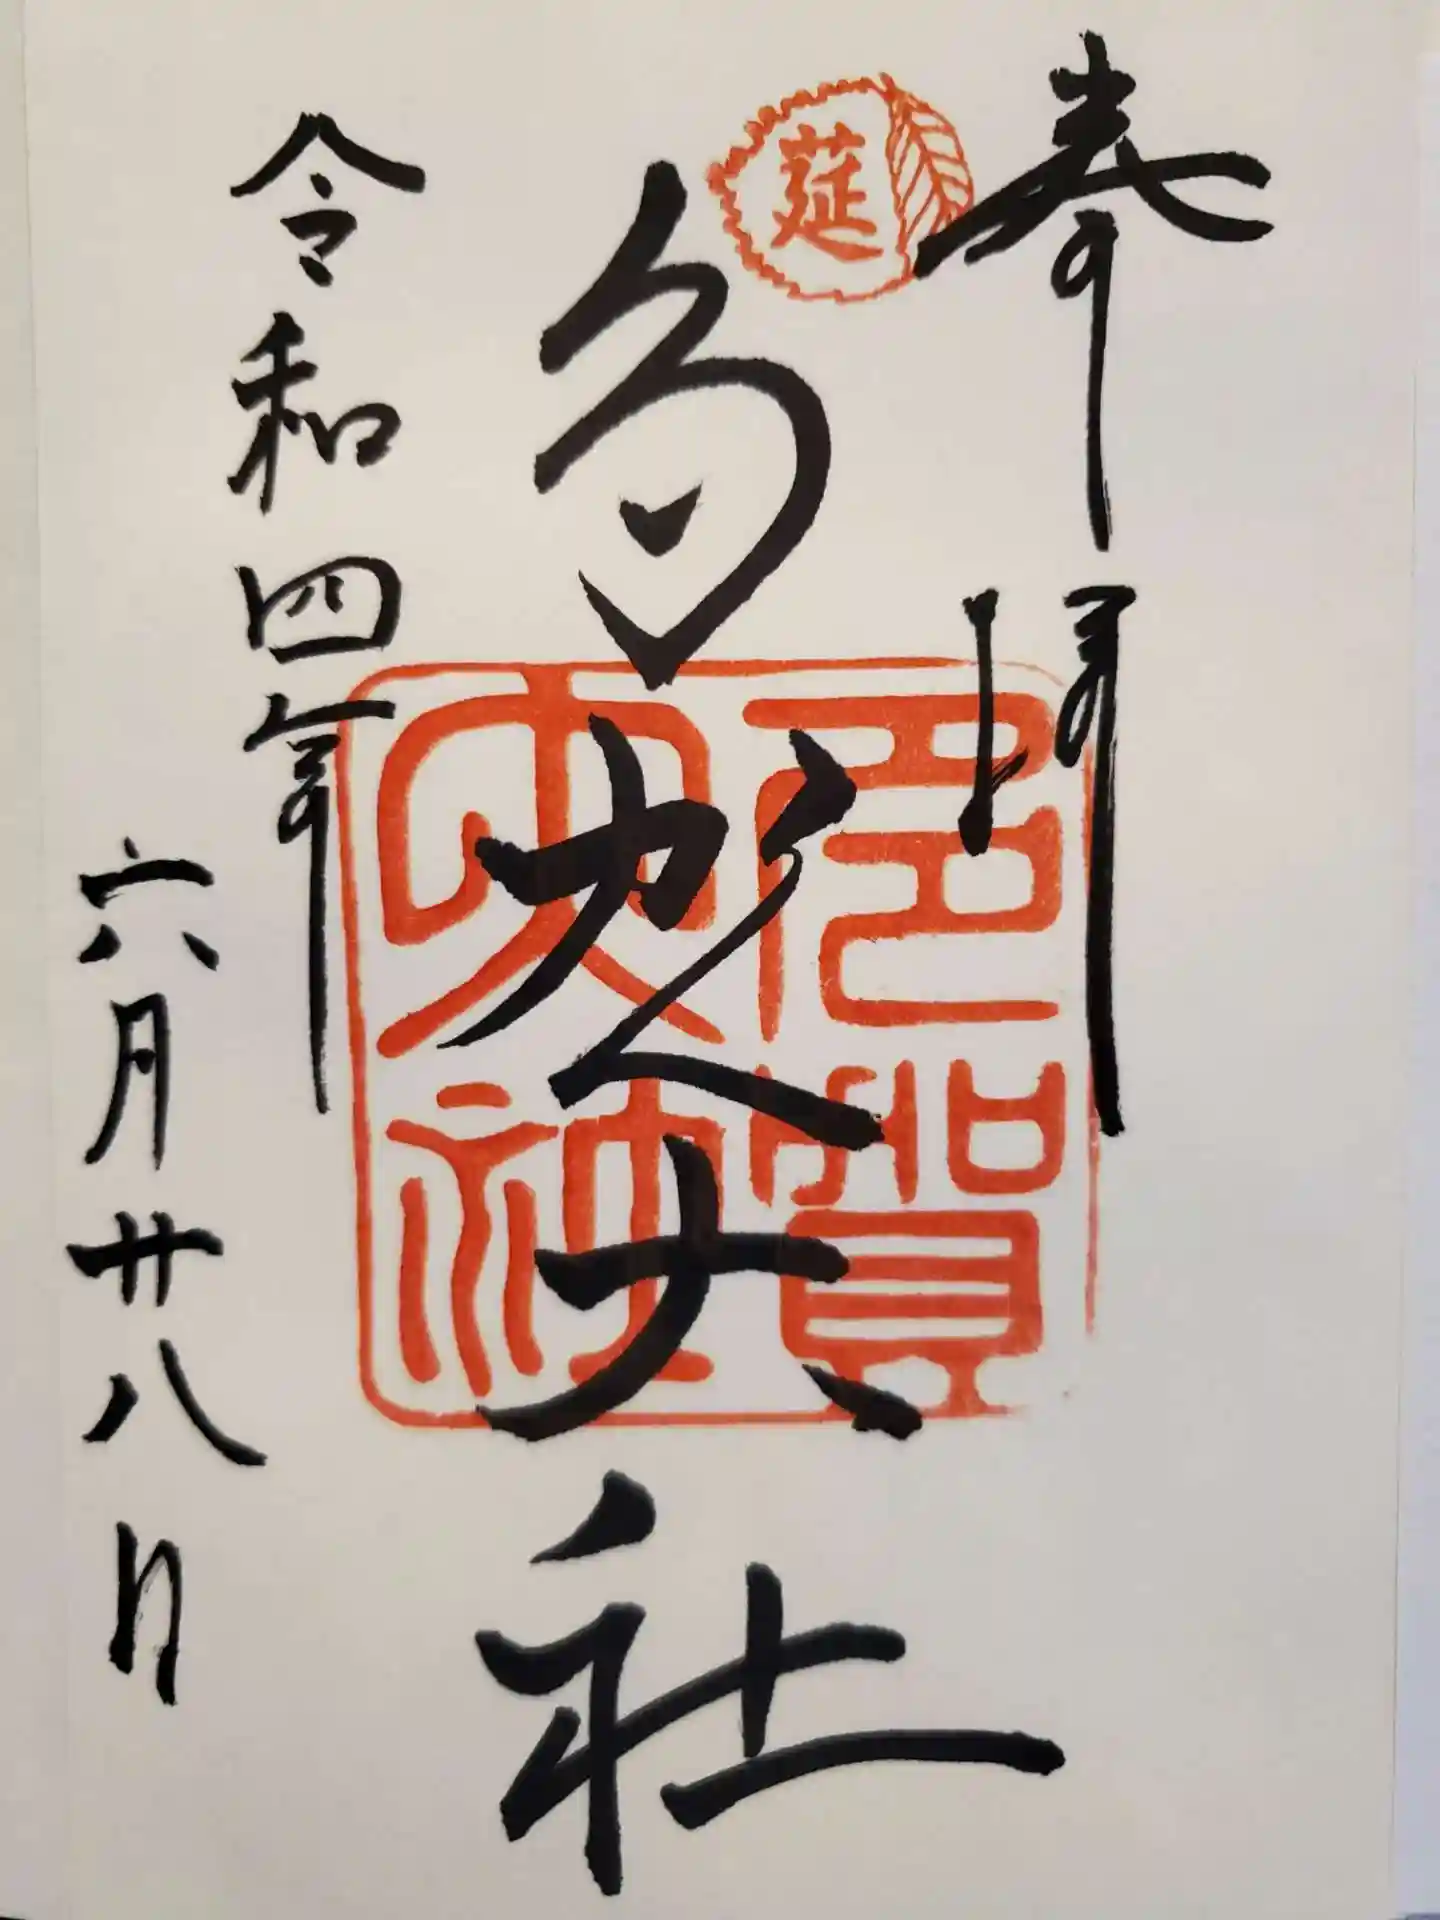 奉拝
莚
多賀大社
多賀
大社
令和四年
六月廿八日